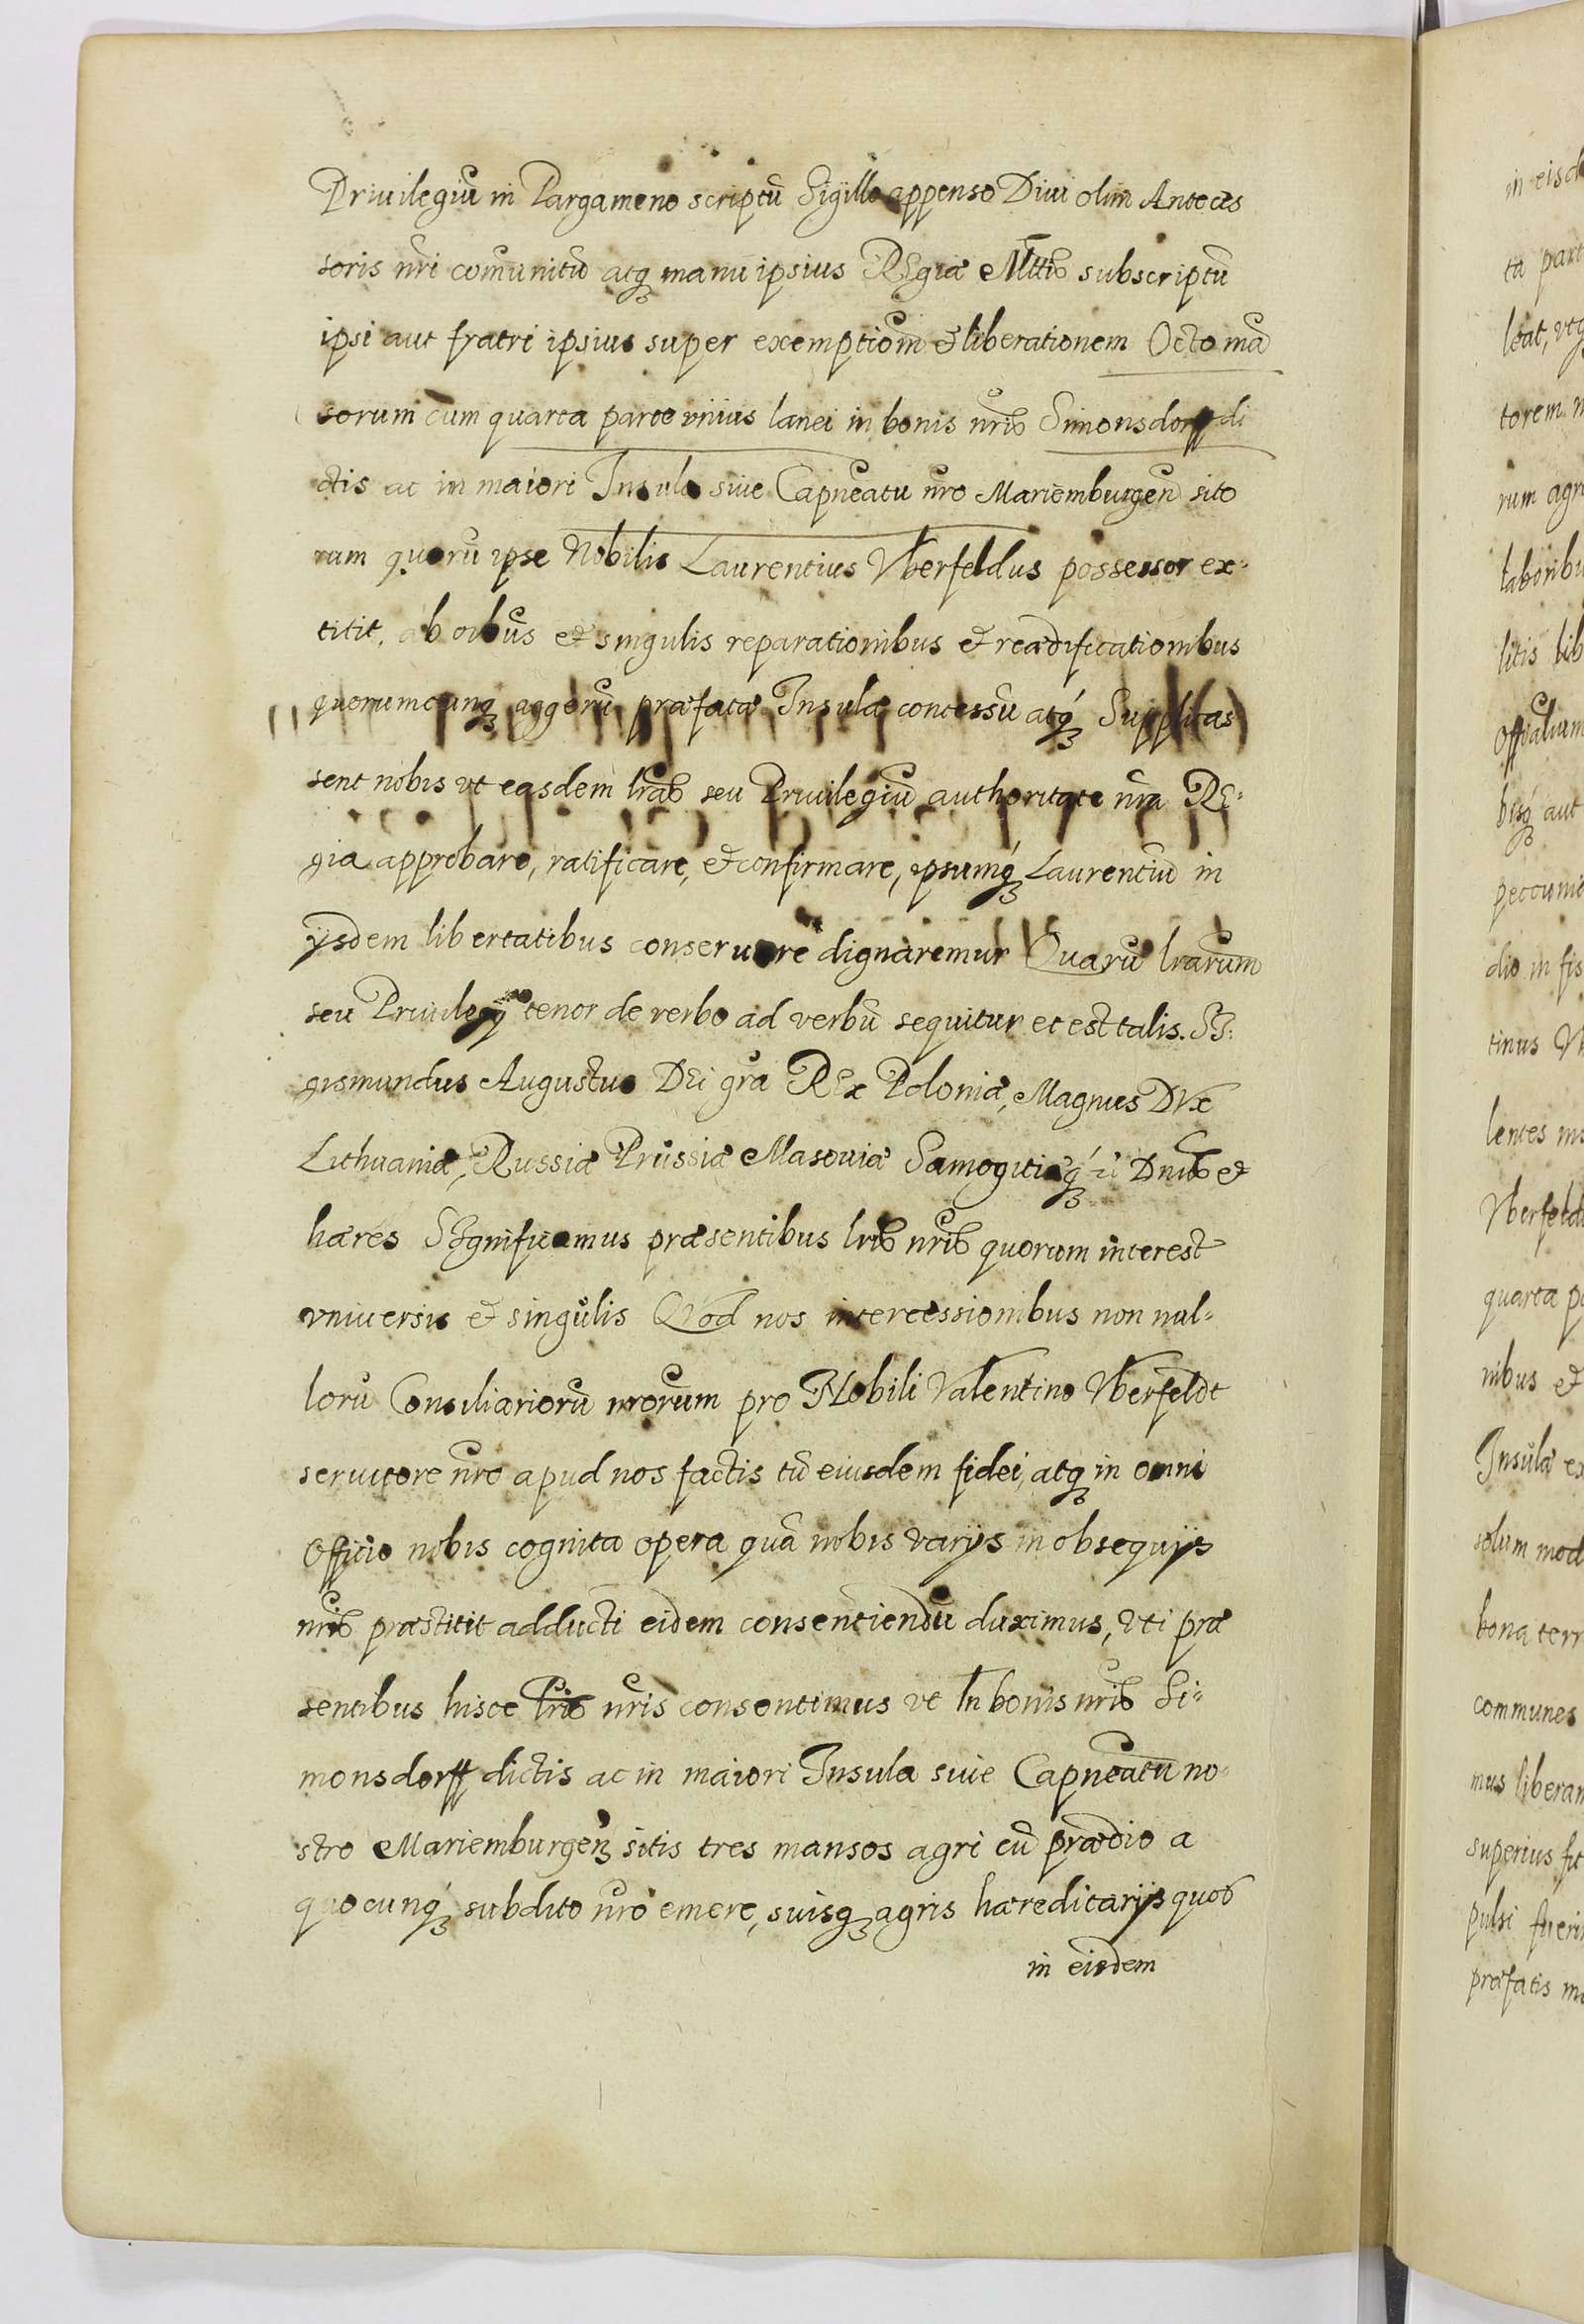 Priuilegiũ in Pargameno scriptũ Sigillo appenso Diui olim Anteces
soris nr̃i comunitũ atq₃ manu ipsius REgiæ Mttis subscriptũ
ipsi aut fratri ipsius super exemptiom̃ & liberationem Octo mã
sorum cum quarta parte vnius lanei in bonis nr̃is Simonsdorff di
ctis ac in maiori Insula siue Capneatu nr̃o Mariemburgeñ sito
rum quorũ ipse Nobilis Laurentius Vberfeldus possessor ex-
titit, ab oib̃us & singulis reparationibus & reædificationibus
quorumcunq₃ aggerũ præfatæ Insulæ concessũ atq́₃ Supplicas
sent nobis vt easdem lr̃as seu Priuilegiũ authoritate nr̃a RE-
gia approbare, ratificare, & confirmare, ipsumq́₃ Laurentiũ in
ijsdem libertatibus conseruare dignaremur Quarũ lr̃arum
seu Priuilegij tenor de verbo ad verbũ sequitur et est talis. SI-
gismundus Augustus DEi gr̃a REx Poloniæ, Magnus DVx
Lithuaniæ, Russiæ Prussiæ Masouiæ Samogitiæq́₃ zc̃ Dnũs &
hæres SIgnificamus præsentibus lr̃is nr̃is quorum interest
vniuersis & singulis QVod nos intercessionibus non nul-
lorũ Consiliariorũ nr̃orum pro Nobili Valentino Vberfeldt
seruitore nr̃o apud nos factis tũ eiusdem fidei, atq₃ in omni
officio nobis cognita opera quã nobis varijs in obsequijs
nr̃is præstitit adducti eidem consentiendũ duximus, vti præ
sentibus hisce lr̃is nr̃is consentimus vt In bonis nr̃is Si-
monsdorff dictis ac in maiori Insula siue Capneatũ no-
stro Mariemburgeñ sitis tres mansos agri cũ prædio a
quocunq́₃ subdito nr̃o emere, suisq₃ agris hæreditarijs quos
in eisdem
in eisd
ta part
leat, vtq
torem n
rum agr
laboribu
litis lib
Officialium
bisq́₃ aut
peccunie
dio in fis
tinus V
lentes
Vberfeld
quarta p
nibus &
Insulæ ex
solum mod
bona terr
communes
mus liberam
superius
pulsi fueri
præfatis m